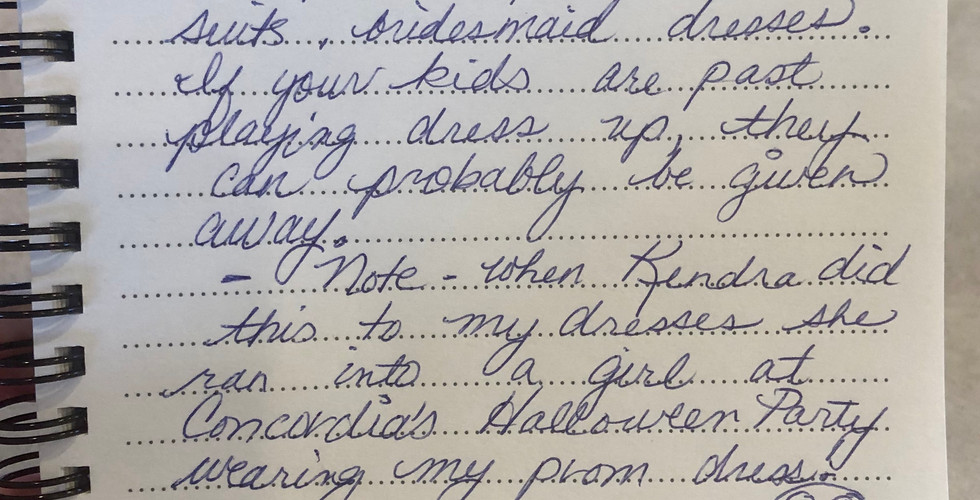 suits, bridesmaid dresses.
If your kids are past
playing dress up, they
can probably be given
away.
- Note - when Kendra did
this to my dresses she
ran into a girl at
Concordia's Halloween Party
wearing my prom dress.